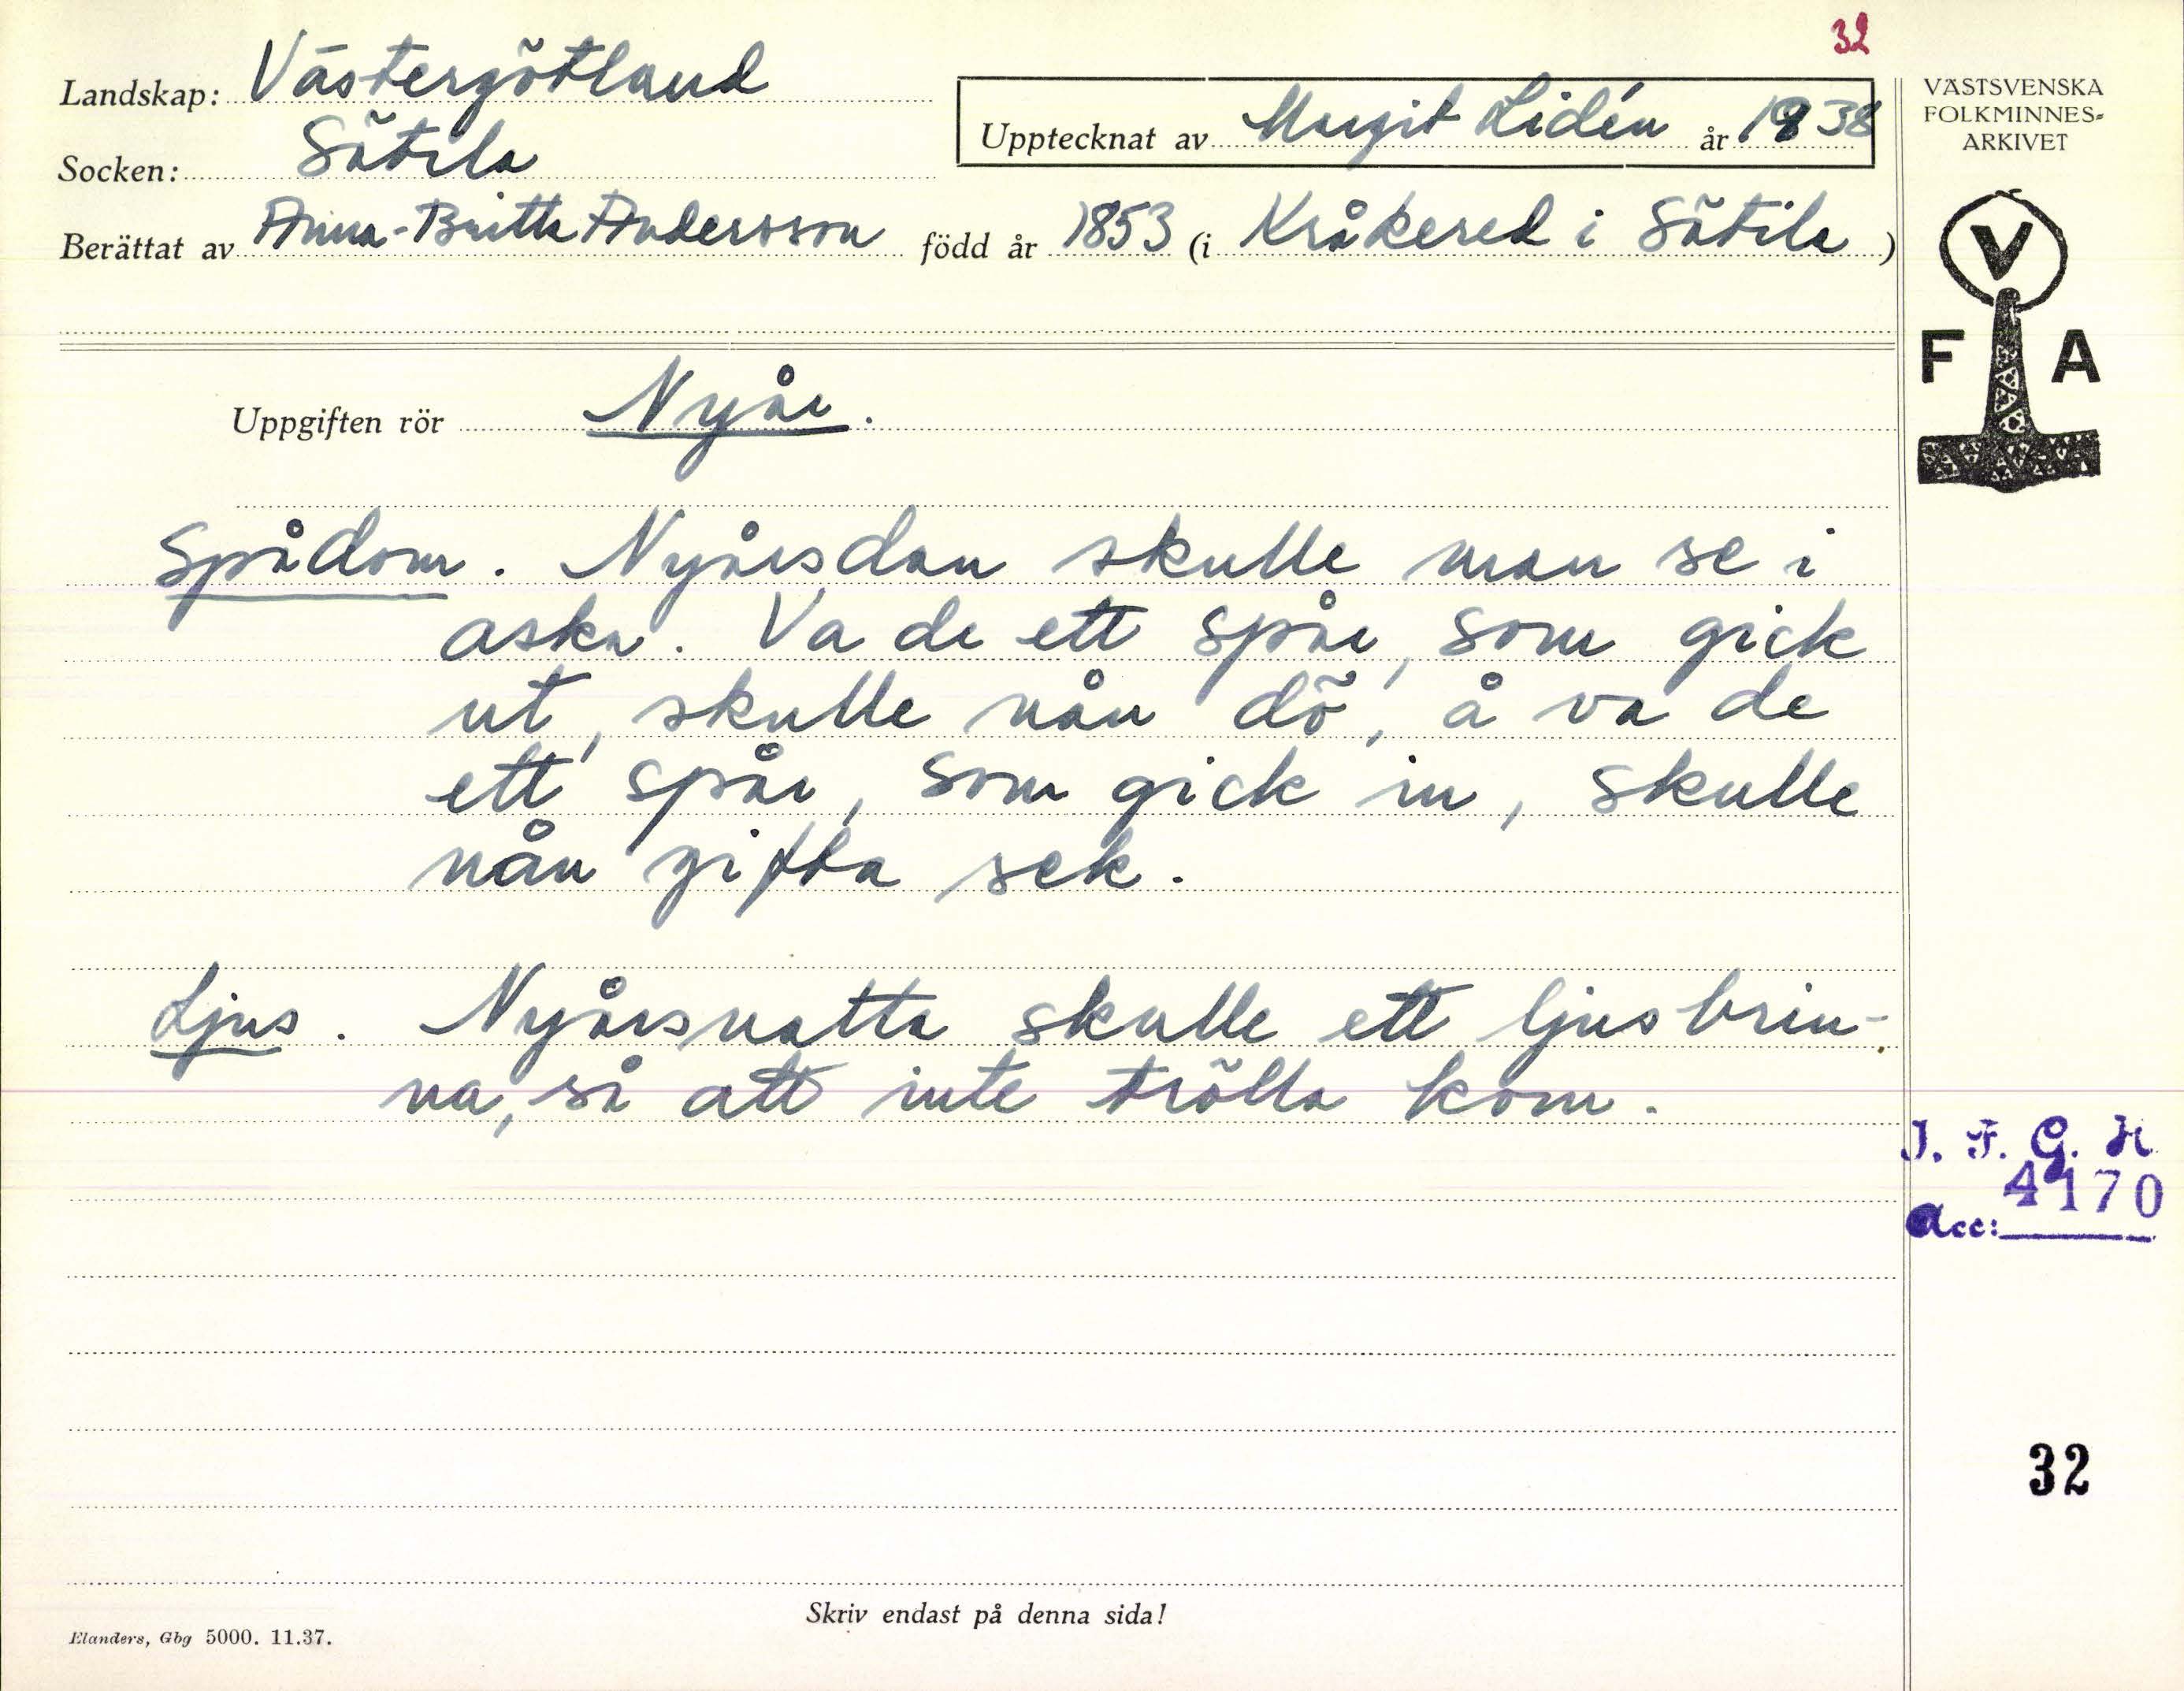 32
Landskap: Västergötland
Upptecknat av Margit Lidén år 1938
Socken: Sätila
Berättat av Anna-Britta Andersson född år 1853 (i Kråkered i Sätila)
VÄSTSVENSKA
FOLKMINNES-
ARKIVET
V
F A
Uppgiften rör Nyår.
Spådom. Nyårsdan skulle man se i
aska. Va de ett spår, som gick
ut, skulle nån dö, å va de
ett spår, som gick in, skulle
nån gifta sek.
Ljus. Nyårsnatta skulle ett ljus brin-
na, så att inte trölla kom.
I. F. G. H.
4170
Acc:
32
Skriv endast på denna sida!
Elanders, Gbg 5000. 11.37.